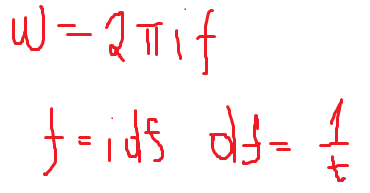 W = 2πif
f = idf df = 1/t